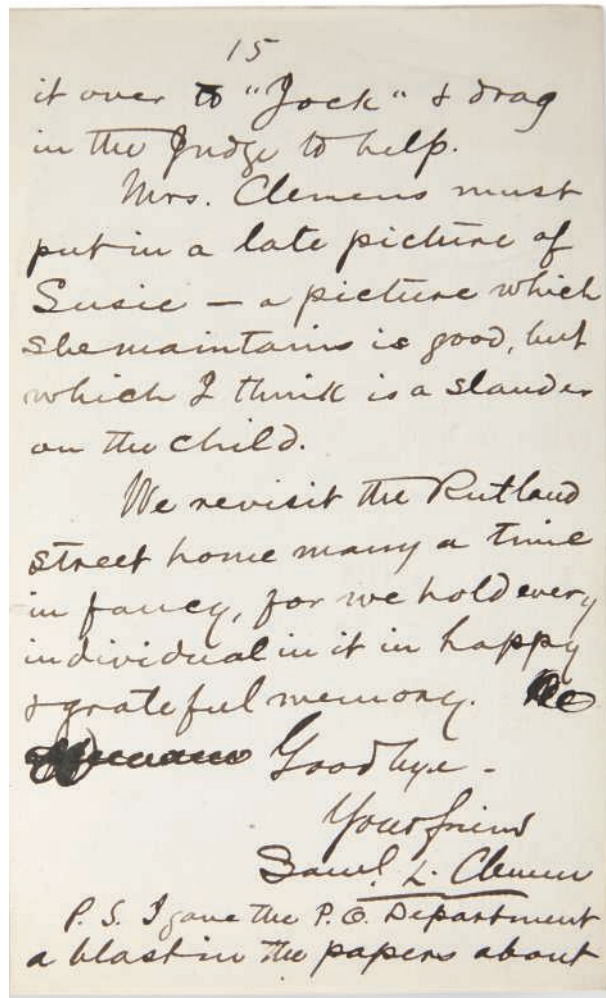 15
it over to "Jock" & drag
in the Judge to help.
Mrs. Clemens must
put in a late picture of
Susie — a picture which
she maintains is good, but
which I think is a slander
on the child.
We revisit the Rutland
street home many a time
in fancy, for we hold every
individual in it in happy
& grateful memory.
Goodbye –
Your friend
Saml. L. Clemens
P. S. I gave the P.O. Department
a blast in the papers about